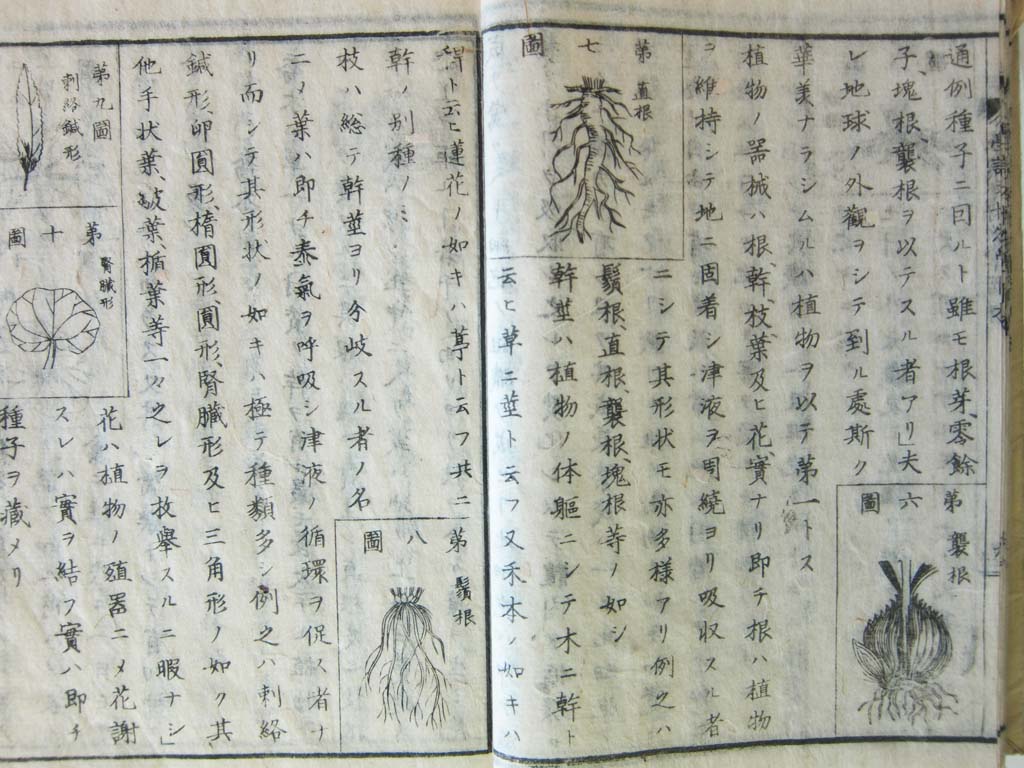 通例種子ニ回ルト雖モ根芽、零餘
子、塊根、襲根ヲ以テスル者アリ」夫
レ地球ノ外觀ヲシテ到ル處斯ク
華美ナラシムルハ植物ヲ以テ第一トス
植物ノ器械ハ根、幹、枝、葉及ヒ花、實ナリ即チ根ハ植物
ヲ維持シテ地ニ固着シ津液ヲ周繞ヨリ吸収スル者
ニシテ其形状モ亦多様アリ例之ハ
鬚根、直根、襲根、塊根等ノ如シ
幹莖ハ植物ノ体軀ニシテ木ニ幹ト
云ヒ草ニ莖ト云フ又禾本ノ如キハ
第六圖
襲根
第七圖
直根
稈ト云ヒ蓮花ノ如キハ葶ト云フ共ニ
幹ノ別種ノミ
枝ハ総テ幹莖ヨリ分岐スル者ノ名
ニノ葉ハ即チ泰氣ヲ呼吸シ津液ノ循環ヲ促ス者ナ
リ而シテ其形状ノ如キハ極テ種類多シ例之ハ刺絡
鍼形、卵圓形、楕圓形、圓形、腎臓形及ヒ三角形ノ如ク其
他手状葉、岐葉、楯葉等一々之レヲ枚擧スルニ暇ナシ」
花ハ植物ノ殖器ニメ花謝
スレハ實ヲ結フ實ハ即チ
種子ヲ藏メリ
第八圖
鬚根
第九圖
刺絡鍼形
第十圖
腎臓形